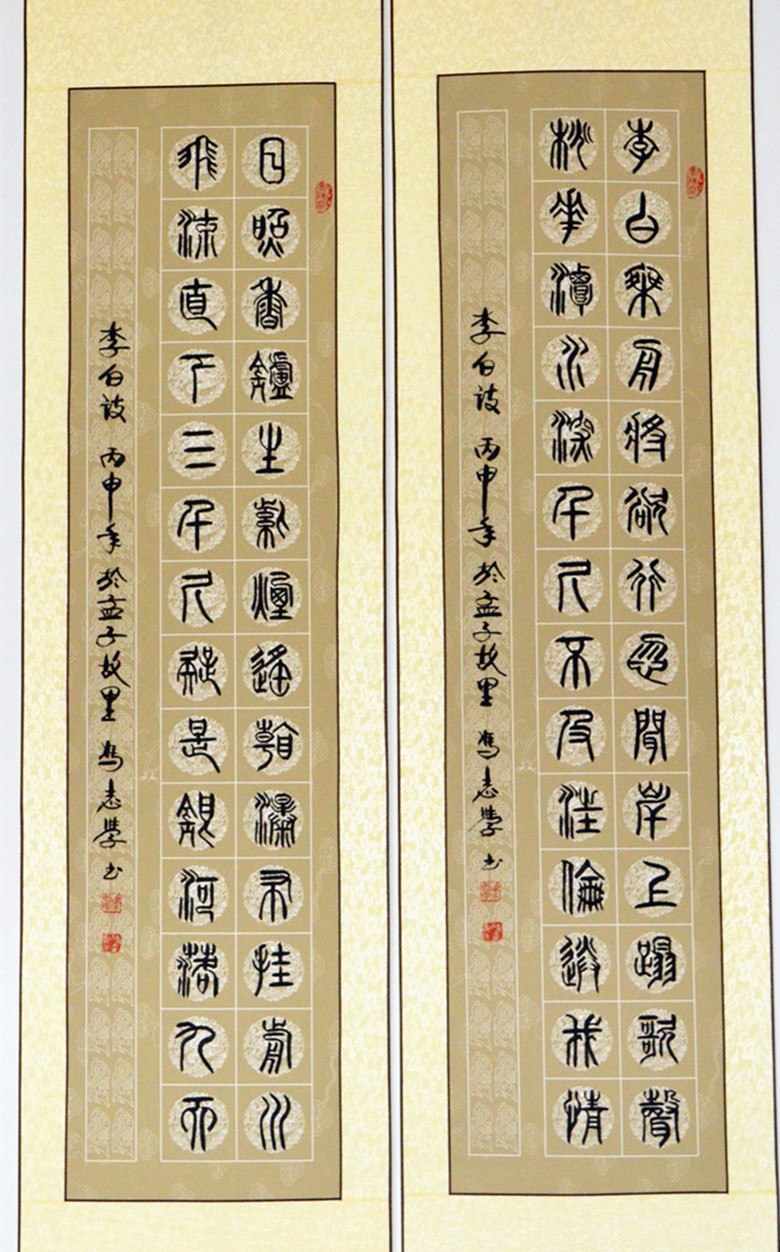 李白乘舟將欲行忽聞岸上蹋歌聲
桃花潭水深千尺不及汪倫送我情
李白诗 丙申年 於孟子故里 馮志學书
日照香鑪生紫煙遙看瀑布挂前川
飛流直下三千尺疑是銀河落九天
李白诗 丙申年 於孟子故里 馮志學书